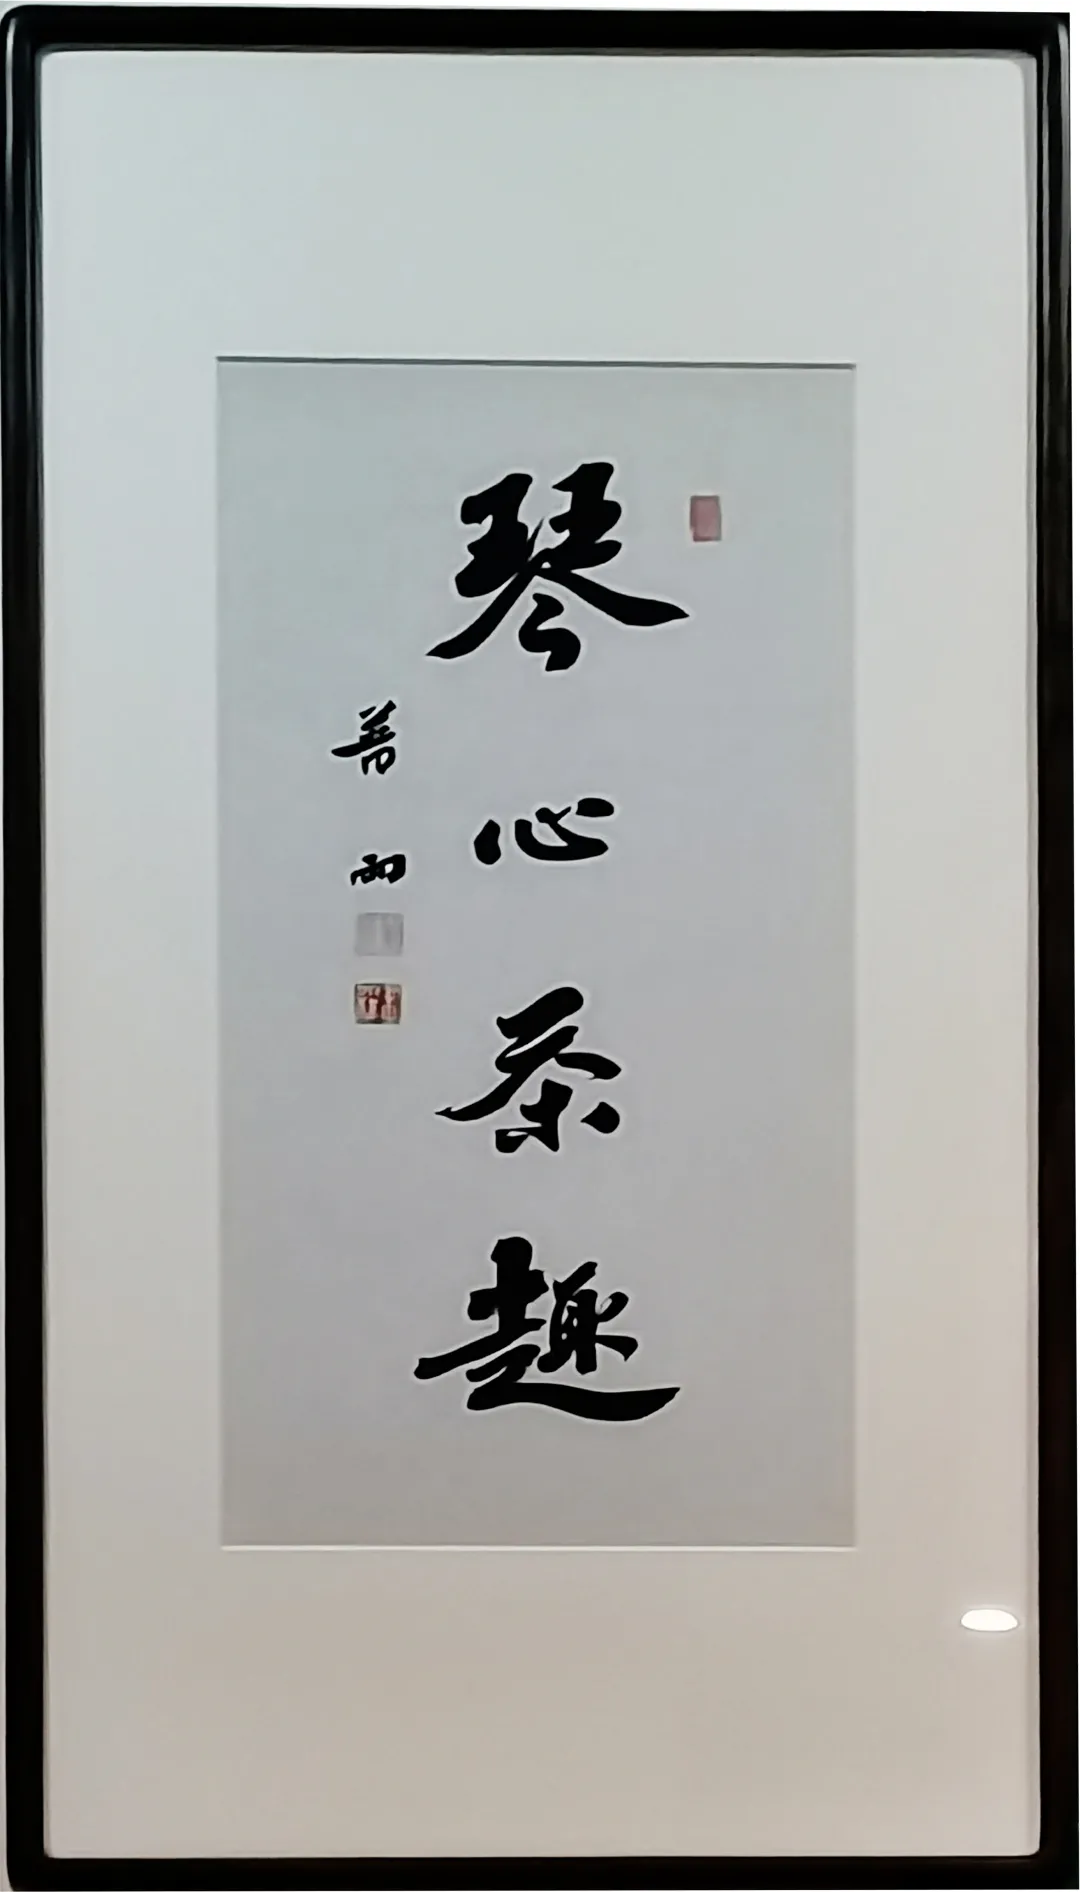 琴心茶趣
普雨